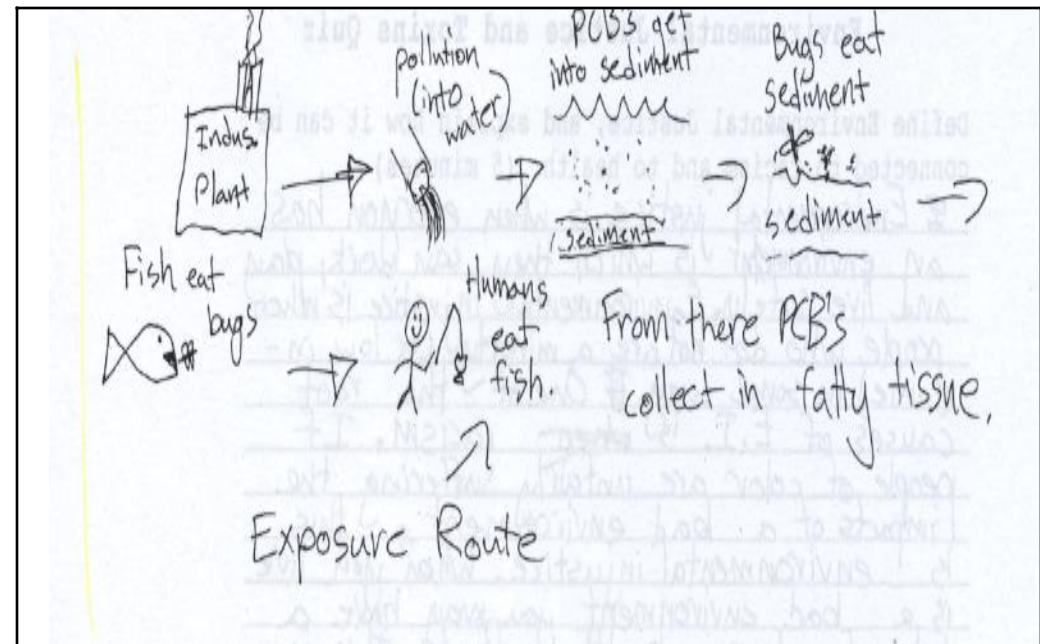 Indus.
Plant
pollution
(into
water)
PCB's get
into sediment
sediment
Bugs eat
sediment
sediment
Fish eat
bugs
Humans
eat
fish
From there PCB's
collect in fatty tissue.
Exposure Route